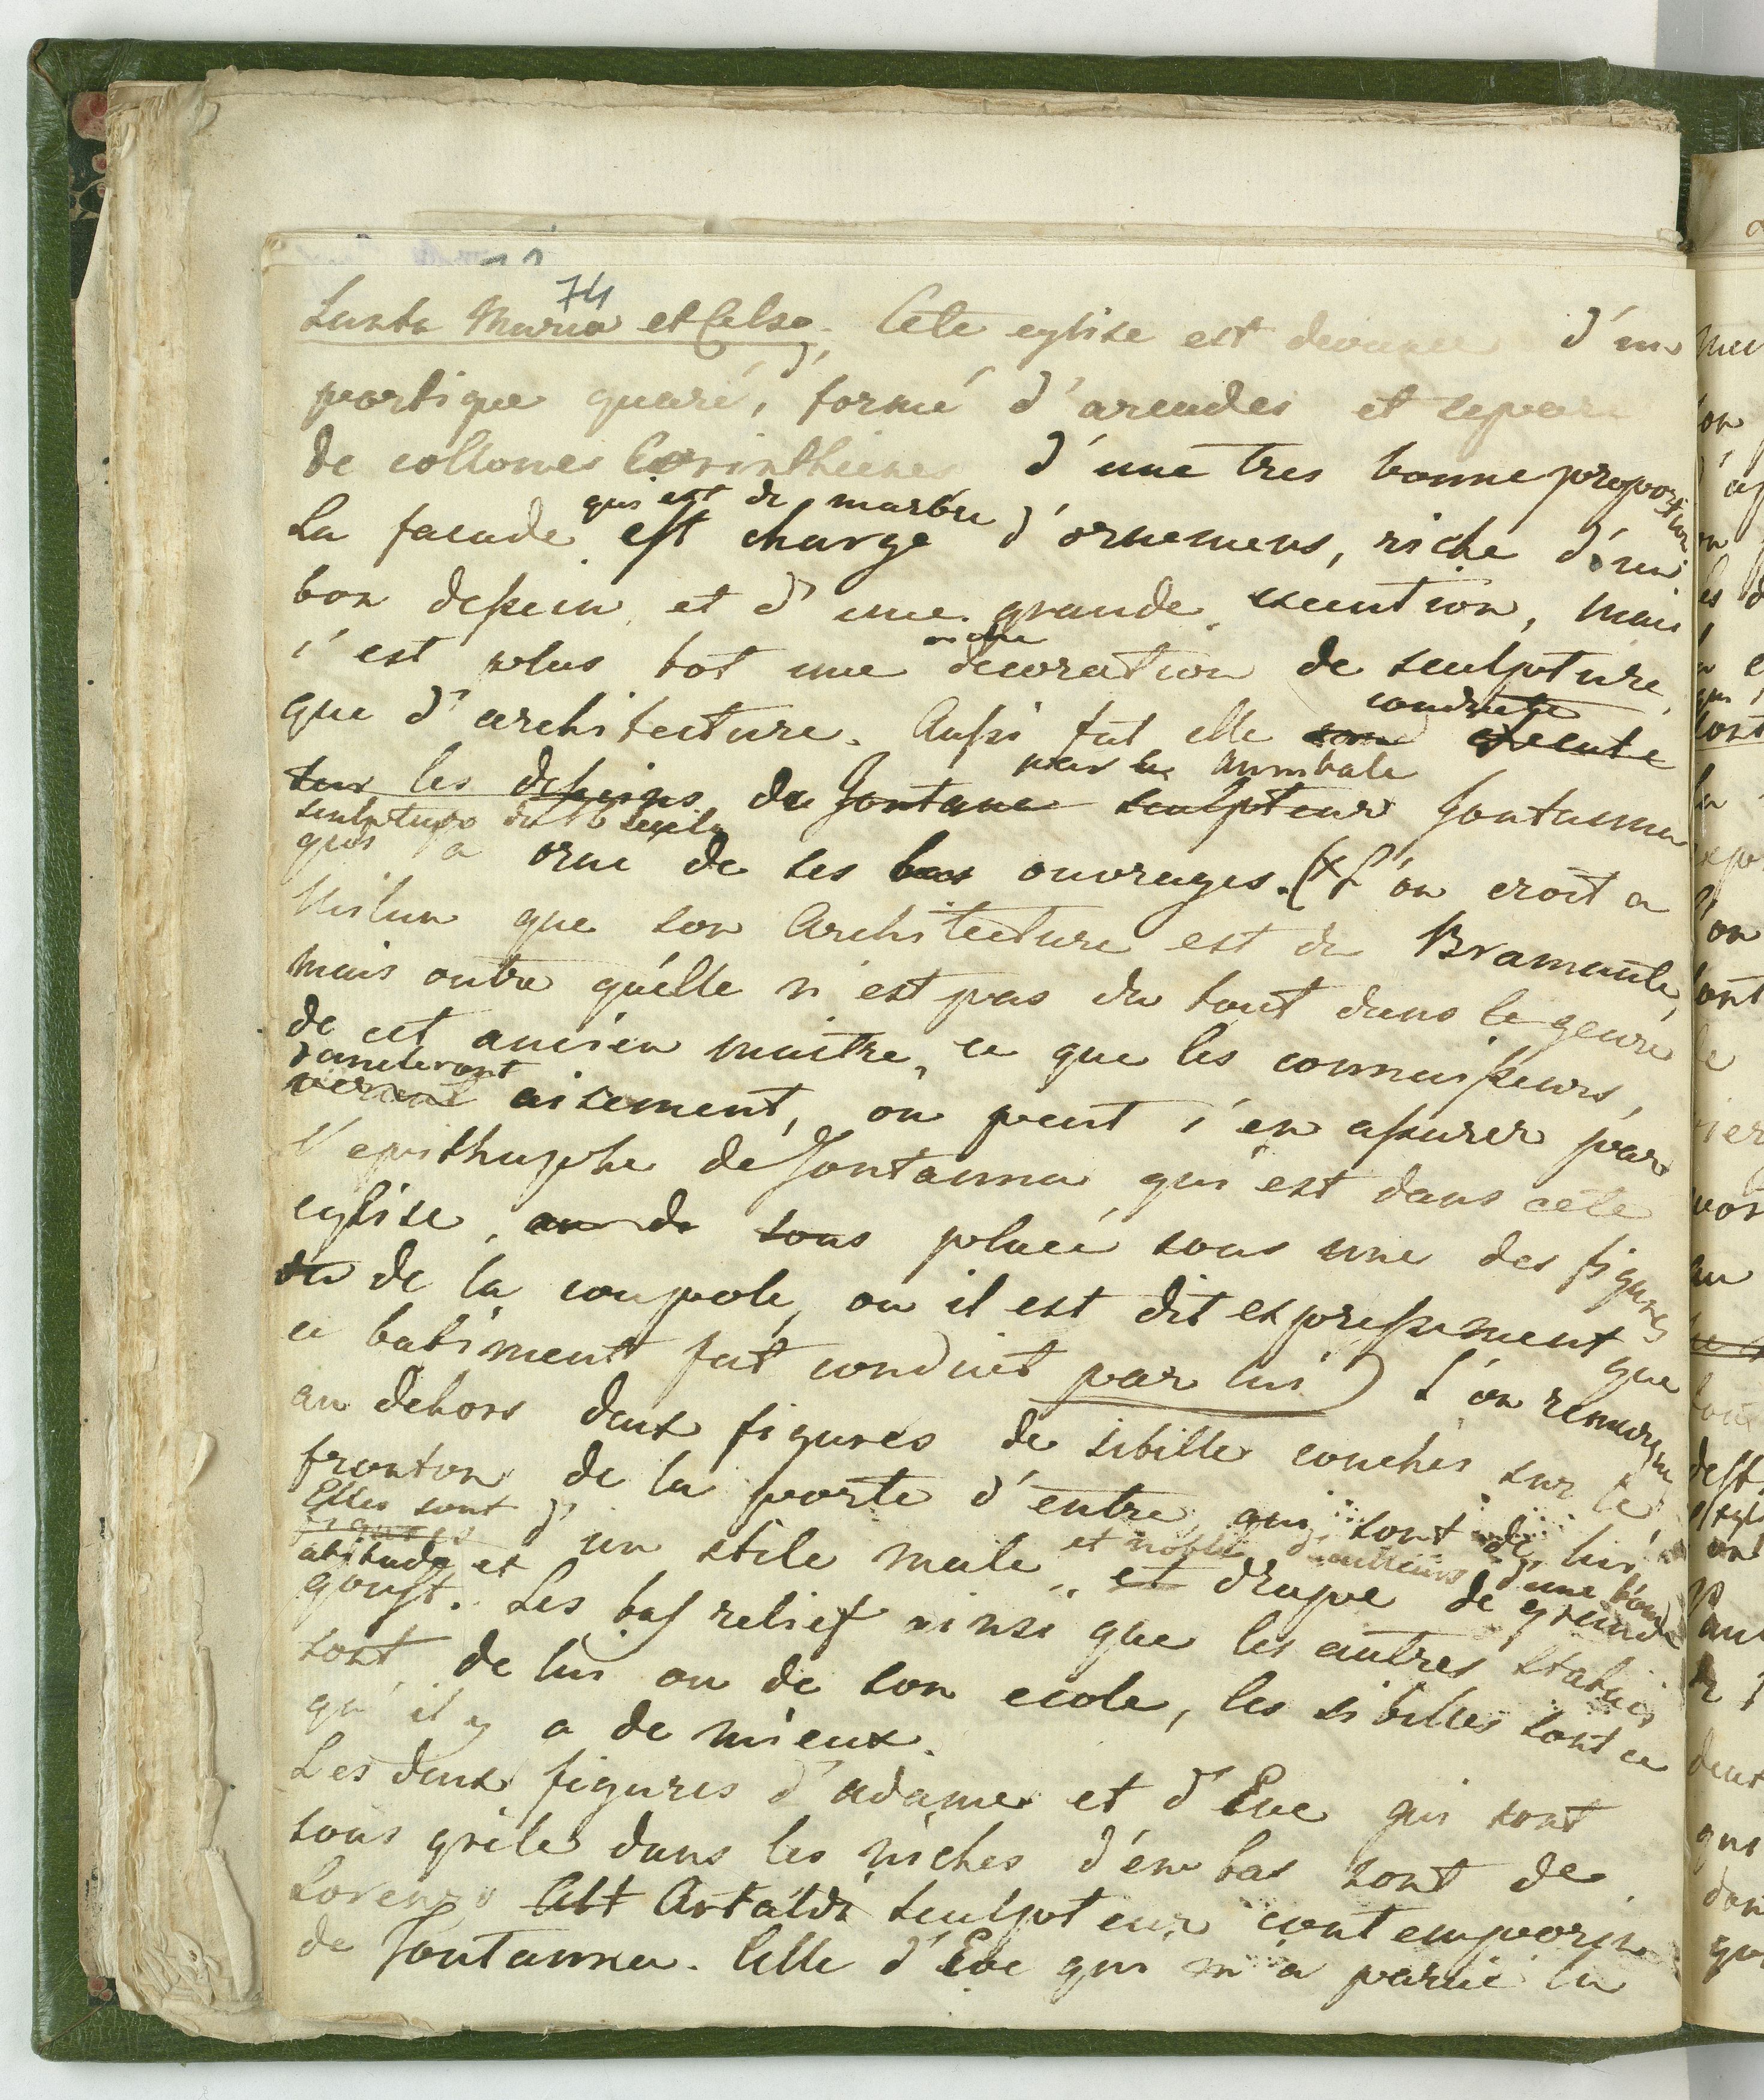 74
Santa Maria et Celso. Cete eglise est devancee d'un
portique quaré, formé d'arcades et separé
de collonnes Corinthienes d'une tres bonne proportion
qui est de marbre
La facade est chargé d'ornemens, riche d'un
bon dessein et d'une grande execution, mais
riche
s'est plus tot une decoration de sculpture,
conduite
que d'architecture. Aussi fut elle executé
par Annibale
sur les desseins de Fontana sculpteur Fontanna
sculpteur du 16 siecle
qui a orné de ses bas ouvrages. (L'on croit a
Milan que son Architecture est de Bramante,
mais outre qu'elle n'est pas du tout dans le genre
de cet ancien maitre, ce que les connaisseurs,
demeleront
verront aisement, on peut s'en assurer par
l'epithaphe de Fontanna qui est dans cete
eglise, au de sous placé sous une des figures
de la coupole, ou il est dit expressement que
ce batiment fut conduit par lui) L'on remarque
au dehors deux figures de sibille couchés sur le
fronton de la porte d'entre qui sont de lui,
Elles sont
figures d'un stile male et noble d'ailleurs d'une bonne
atitude et
et drapé de grand
goust. Les bas relief ainsi que les autres statues
sont de lui ou de son ecole, les sibilles sont ce
qu'il y a de mieux.
Les deux figures d'adame et d'Eve qui sont
sous grile dans les niches d'en bas sont de
Lorenzo Alt Astaldi sculpteur contemporin
de Fontanna. Celle d'Eve qui m'a parue la